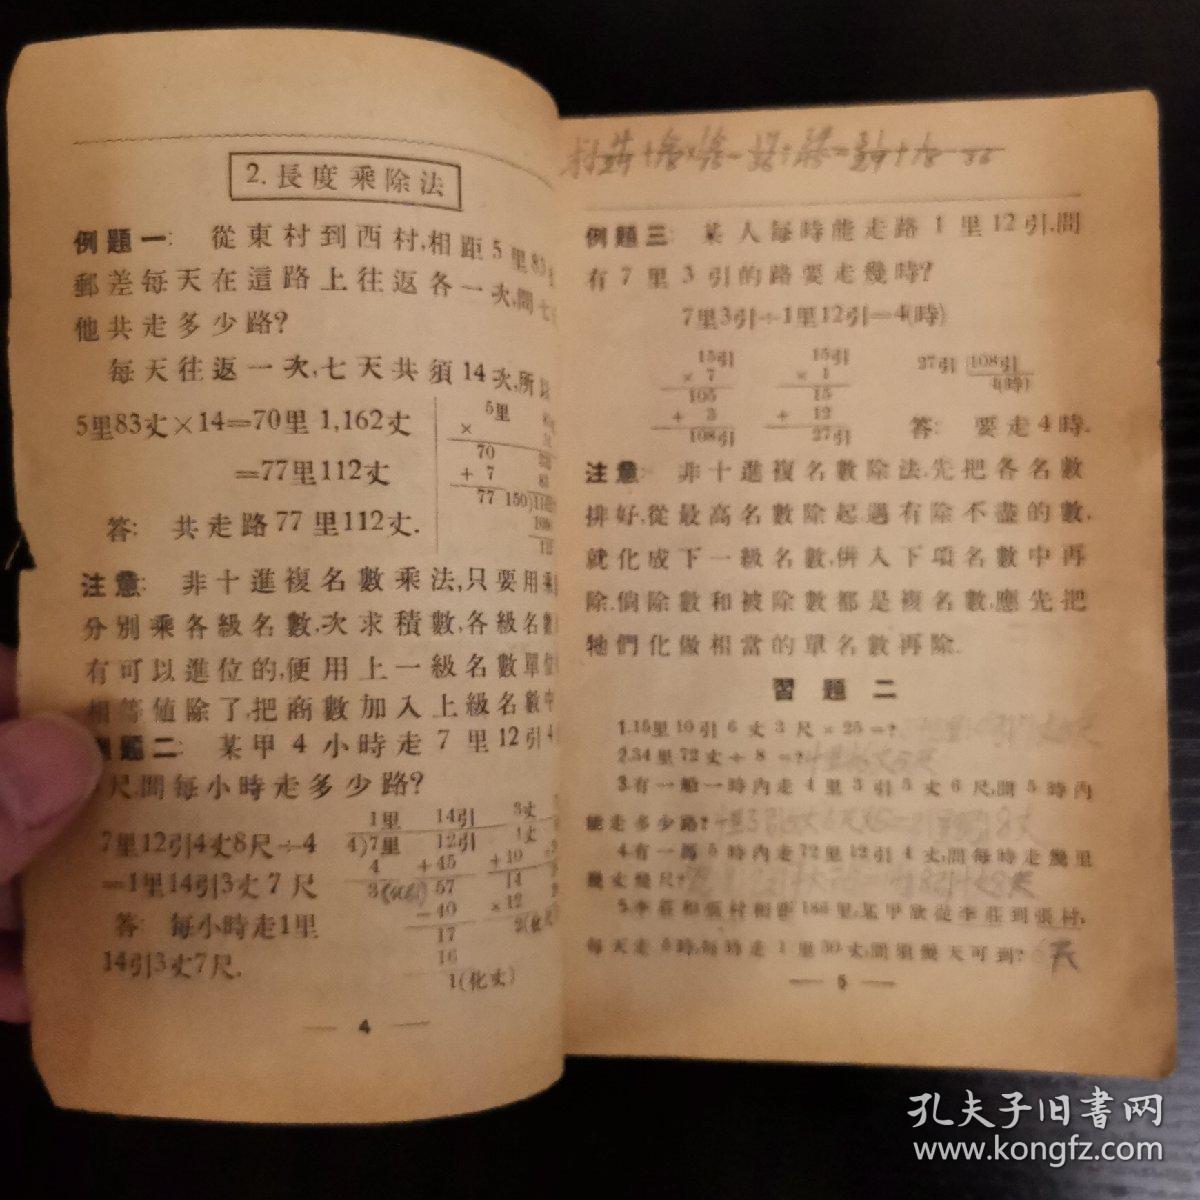 2. 長度乘除法
例題一: 從東村到西村,相距5里83
郵差每天在這路上往返各一次,問七
他共走多少路?
每天往返一次,七天共須14次,所以
5里83丈×14=70里1,162丈
=77里112丈
答: 共走路77里112丈.
5里
×
70
+ 7
77
150)
注意: 非十進複名數乘法,只要用乘
分別乘各級名數,次求積數,各級名數
有可以進位的,便用上一級名數單位
相等値除了,把商數加入上級名數中
例題二: 某甲4小時走7里12引4
尺,問每小時走多少路?
7里12引4丈8尺÷4
=1里14引3丈7尺
答: 每小時走1里
14引3丈7尺.
1里 14引 3丈
4)7里 12引 4丈
4 +45 +10
3 57 14
-40 ×12
17 2(化
16
1(化丈)
— 4 —
例題三: 某人每時能走路1里12引,問
有7里3引的路要走幾時?
7里3引÷1里12引=4(時)
15引 15引 27引 (108引
× 7 × 1 4(時)
105 15
+ 3 + 12
108引 27引
答: 要走4時.
注意: 非十進複名數除法,先把各名數
排好,從最高名數除起,遇有除不盡的數,
就化成下一級名數,併入下項名數中再
除.倘除數和被除數都是複名數,應先把
牠們化做相當的單名數再除.
習題二
1.15里10引6丈3尺×25=?
2.34里72丈÷8=?
3.有一船一時內走4里3引5丈6尺,問5時內
能走多少路?
4.有一馬5時內走72里12引4丈,問每時走幾里
幾丈幾尺?
5.李莊和張村相距186里,某甲欲從李莊到張村,
每天走5時,每時走1里30丈,問須幾天可到? 天
— 5 —
孔夫子旧書网
www.kongfz.com